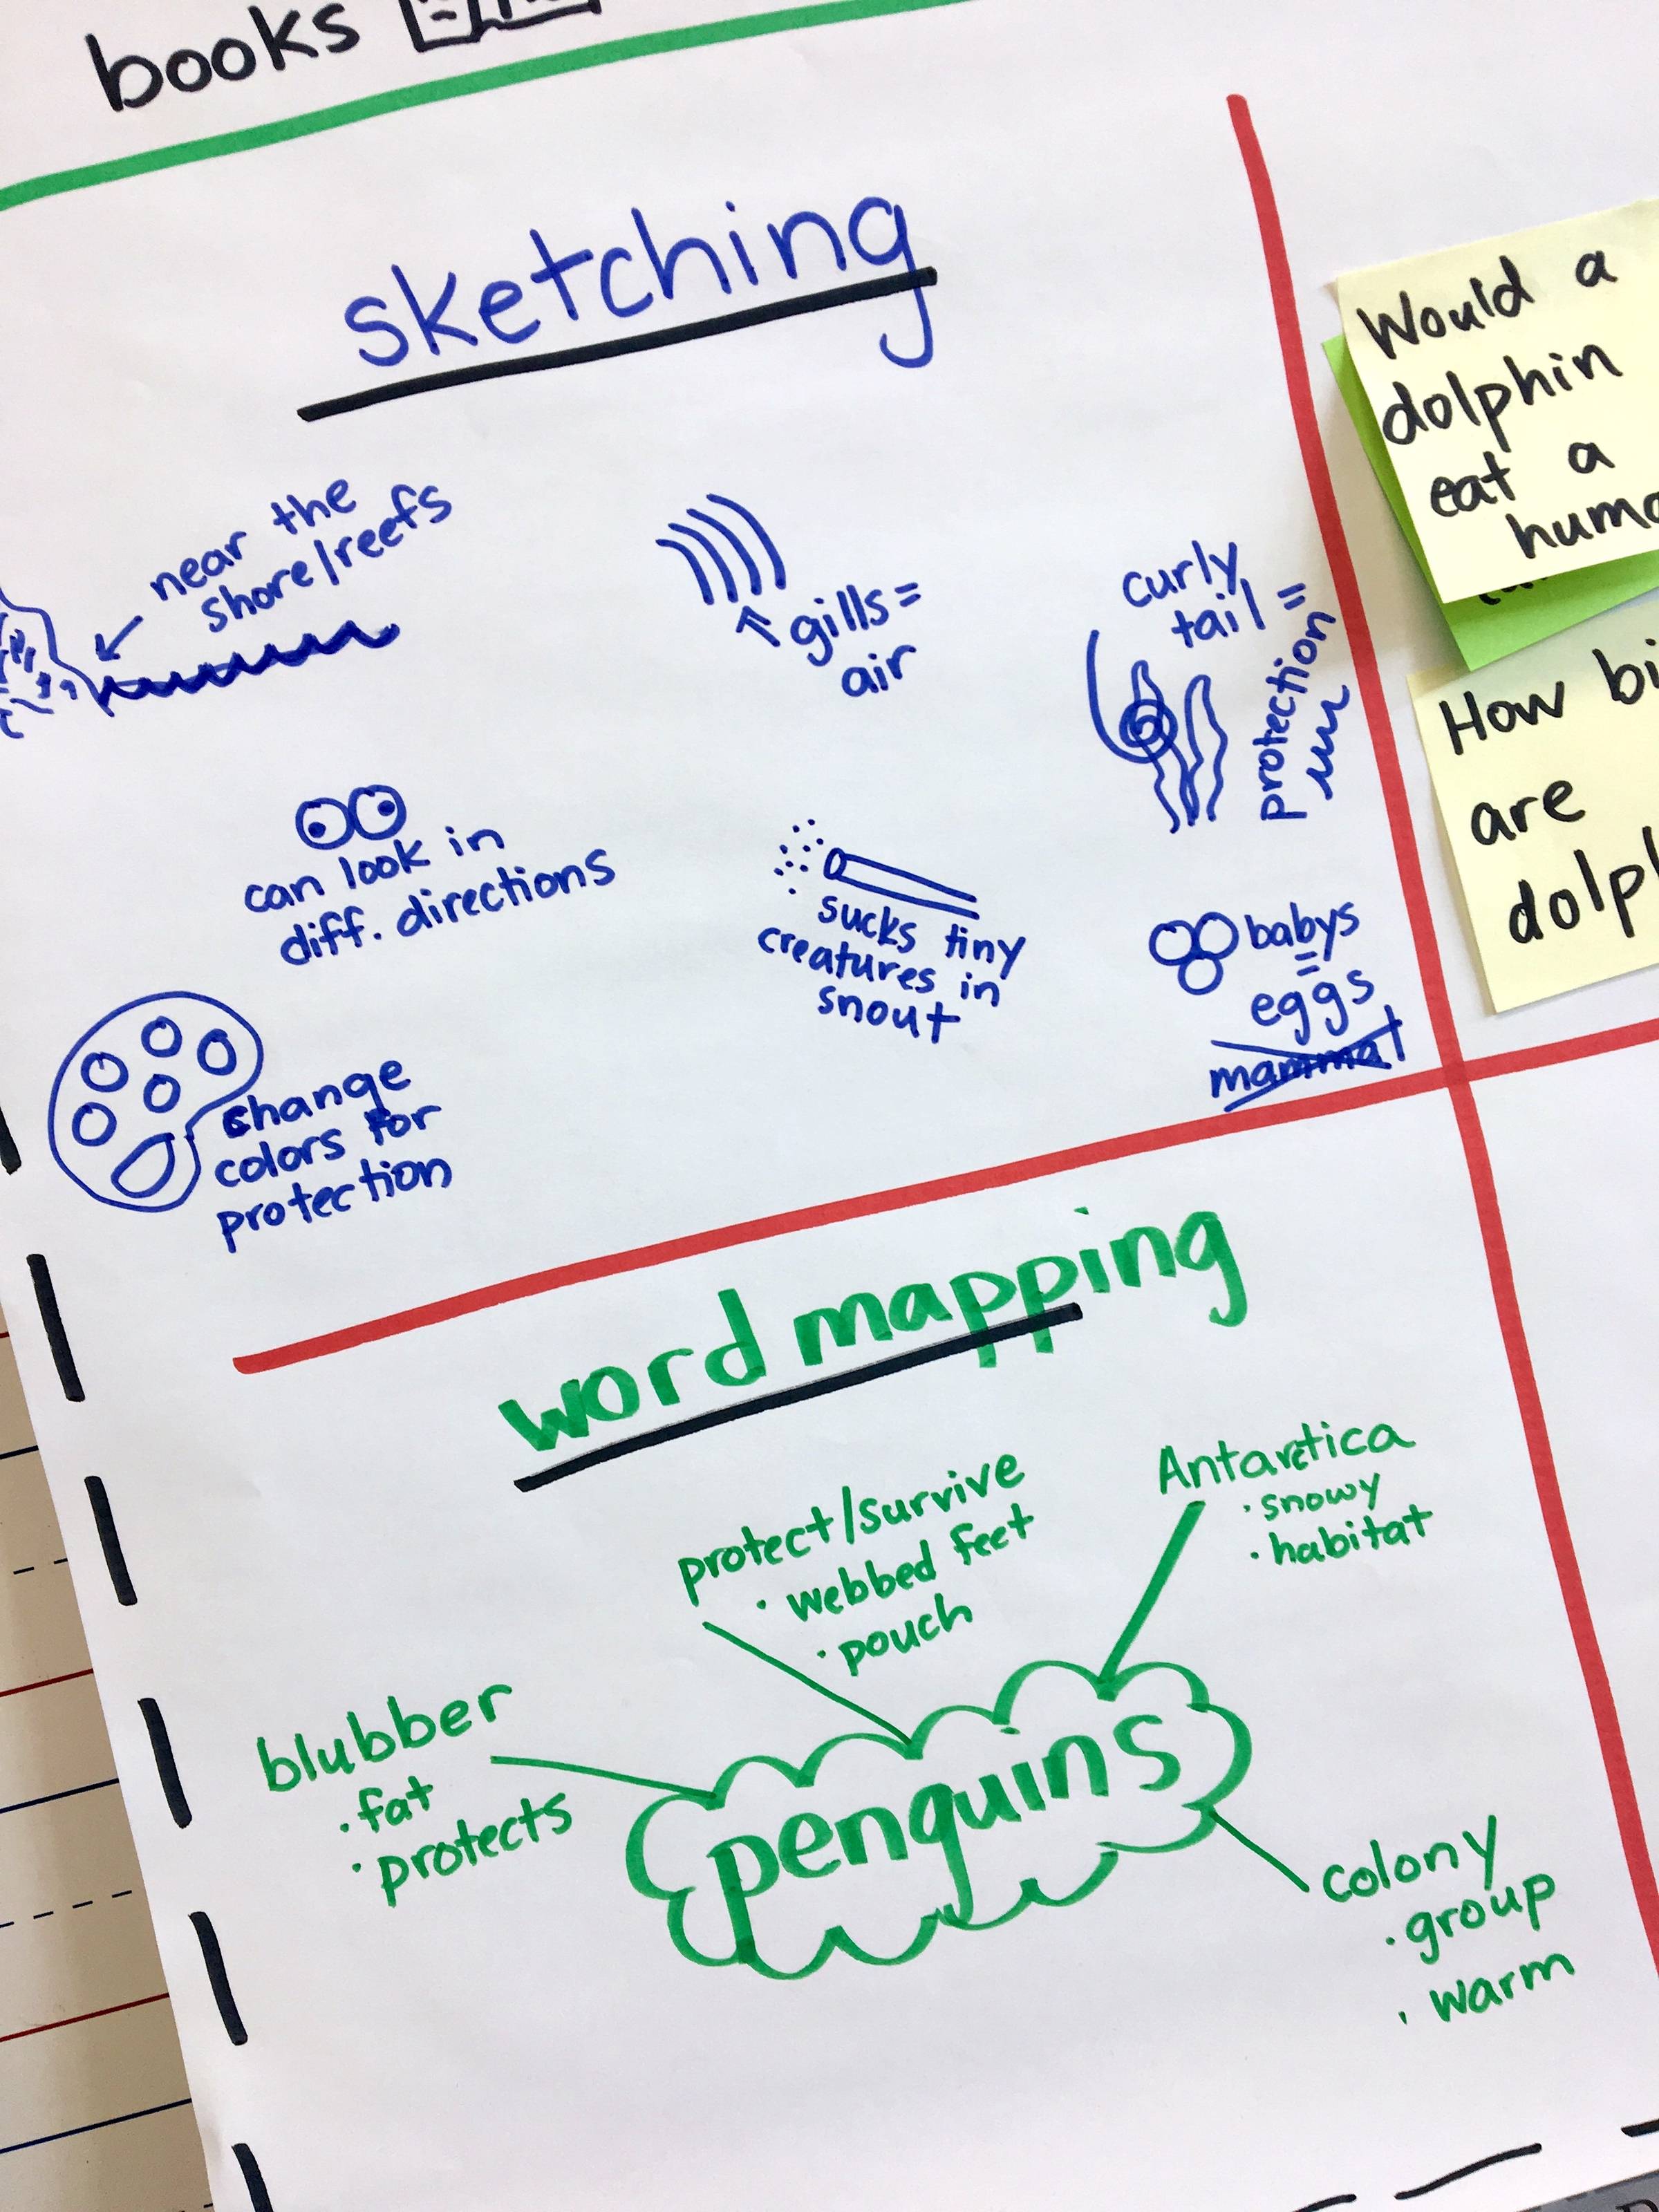 books
sketching
near the
shore/reefs
gills=
air
curly
tail =
protection
can look in
diff. directions
sucks tiny
creatures in
snout
babys
=
eggs
mammal
change
colors for
protection
Would a
dolphin
eat a
How
are
word mapping
protect/survive
· webbed feet
· pouch
Antarctica
· snowy
· habitat
blubber
· fat
· protects
penguins
colony
· group
· warm